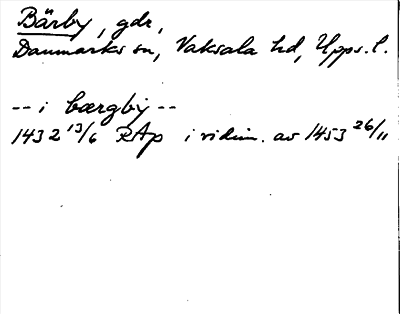 Bärby, gdr,
Danmarks sn, Vaksala hd, Upps. l.
-- i bærgby --
1432 13/6 RAp i vidim. av 1453 26/11